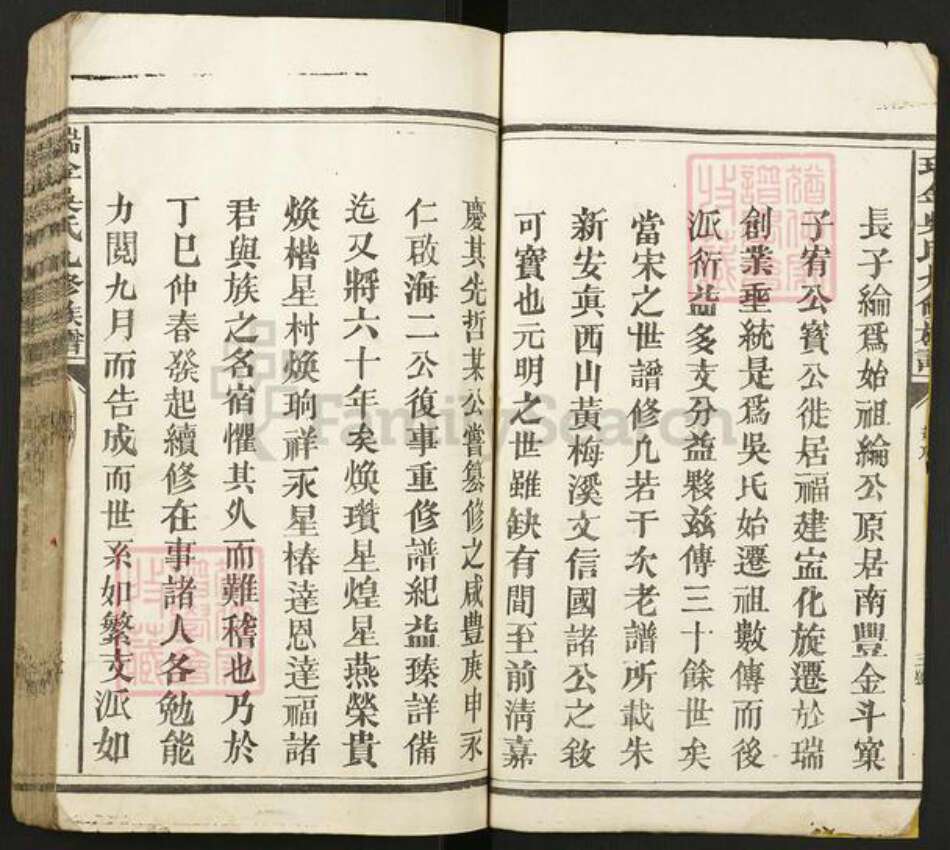 長子綸爲始祖綸公原居南豐金斗窠
子宥公賓公徙居福建寍化旋遷於瑞
創業垂統是爲吳氏始遷祖數傳而後
派衍益多支分益夥兹傳三十餘世矣
當宋之世譜修几若干次老譜所載朱
新安眞西山黃梅溪文信國諸公之敘
可寶也元明之世雖缺有間至前清嘉
慶其先哲某公嘗纂修之咸豐庚申永
仁啟海二公復事重修譜紀益臻詳備
迄又將六十年矣煥瓚星煌星燕榮貴
煥楷星村煥珦祥永星椿達恩達福諸
君與族之名宿懼其久而難稽也乃於
丁巳仲春發起續修在事諸人各勉能
力閱九月而告成而世系如繁支派如
瑞金吳氏九修族譜
FamilySearch